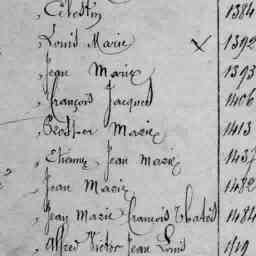 , Célestin 1384
, Louis Marie X 1392
, Jean Marie 1393
, François Jacques 1406
, Prosper Marie 1413
, Etienne Jean Marie 1437
, Jean Marie 1482
, Jean Marie Francois 1484
, Alfred Victor Jean Louis